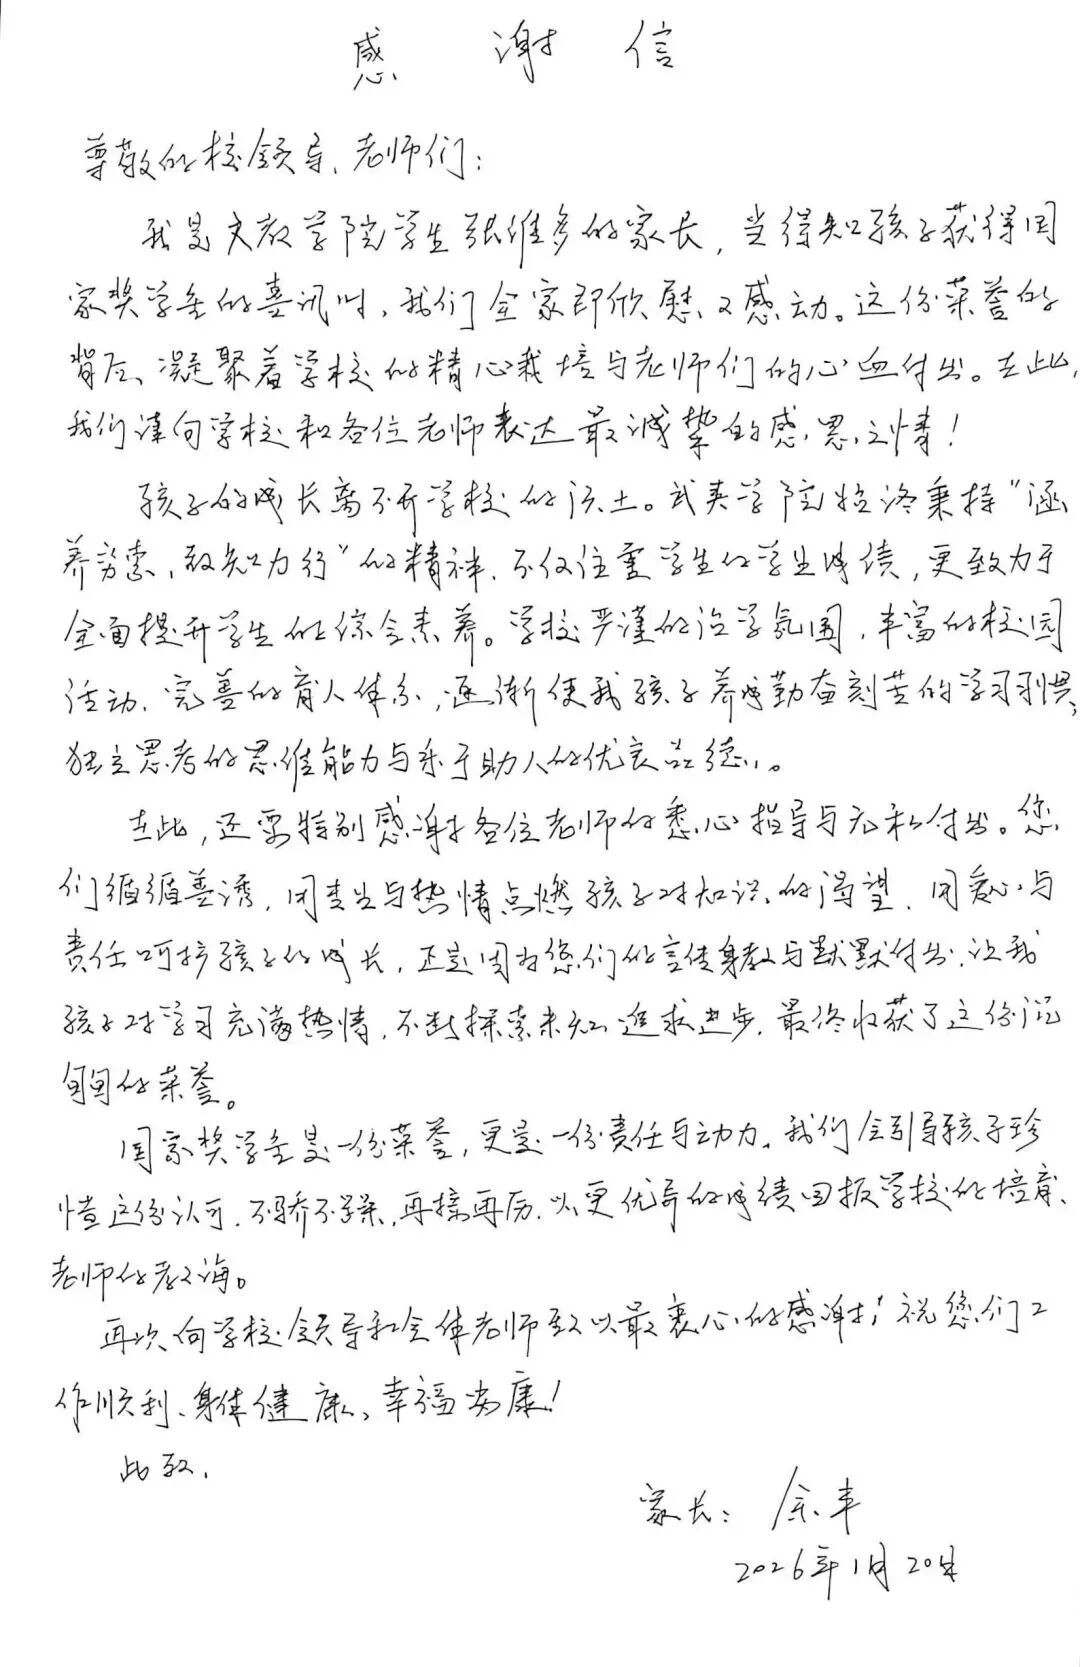 感谢信
尊敬的校领导、老师们：
我是文教学院学生张维多的家长，当得知孩子获得国
家奖学金的喜讯时，我们全家即欣慰又感动。这份荣誉的
背后、凝聚着学校的精心栽培与老师们的心血付出。在此，
我们谨向学校和各位老师表达最诚挚的感恩之情！
孩子的成长离不开学校的沃土。武夷学院始终秉持“涵
养穷索，致知力行”的精神．不仅注重学生的学生成绩，更致力于
全面提升学生的综合素养。学校严谨的治学氛围，丰富的校园
活动、完善的育人体系，逐渐使我孩子养成勤奋刻苦的学习习惯，
独立思考的思维能力与乐于助人的优良品德。
在此，还要特别感谢各位老师的悉心指导与无私付出。您
们循循善诱，用专业与热情点燃孩子对知识的渴望、用爱心与
责任呵护孩子的成长，正是因为您们的言传身教与默默付出，让我
孩子对学习充满热情，不断探索未知、追求进步，最终收获了这份沉
甸甸的荣誉。
国家奖学金是一份荣誉，更是一份责任与动力。我们会引导孩子珍
惜这份认可，不骄不躁，再接再厉，以更优异的成绩回报学校的培育、
老师的教诲。
再次向学校领导和全体老师致以最衷心的感谢！祝您们工
作顺利、身体健康、幸福安康！
此致，
家长：余丰
2026年1月20日